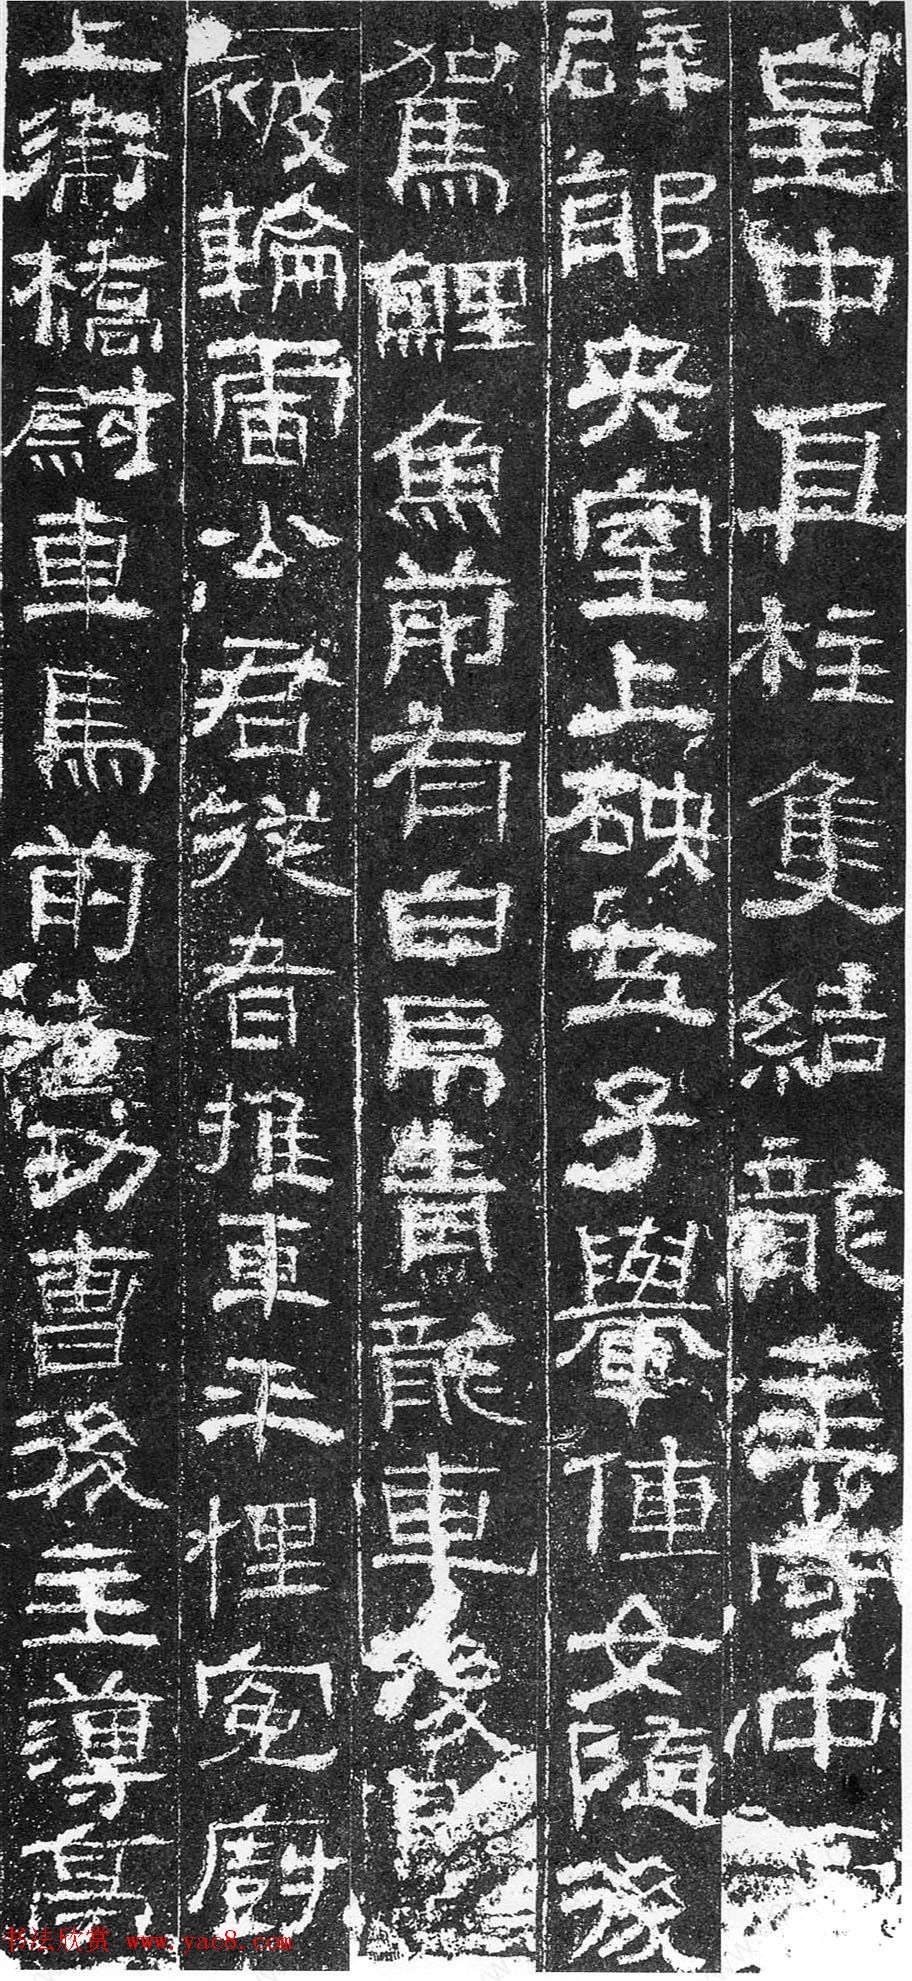 皇中直柱隻結龍主守中
辟邪央室上硤五子轝僮女隨後
駕鯉魚前有白虎青龍車後
被輪雷公君從者推車平悝冤廚
上衛橋尉車馬前者功曹後主簿亭
书法欣赏 www.yac8.com